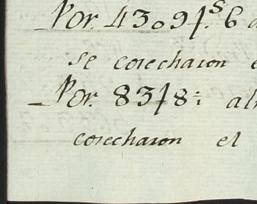 Por. 4309f.s 6
se cosecharon
Por. 83f8: al
cosecharon el